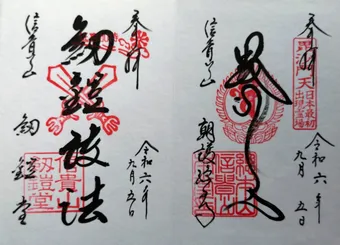 奉拝
毘沙門天
日本最初
出現霊場
信貴山
朝護孫子寺
令和六年
九月五日
奉拝
剱鎧護法
信貴山
剱鎧堂
令和六年
九月五日
信貴山
剱鎧堂